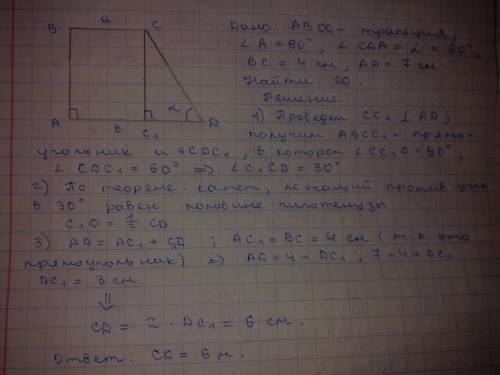 a
B
C
A
B
C₁
α
D
Дано: ABCD - трапеция,
∠A = 90°, ∠CDA = α = 60°,
BC = 4 см, AD = 7 см.
Найти: CD.
Решение:
1) Проведем CC₁ ⊥ AD;
получим ABCC₁ - прямо-
угольник и △CDC₁, в котором ∠CC₁D = 90°,
∠CDC₁ = 60° => ∠C₁CD = 30°
2) По теореме: катет, лежащий против угла
в 30° равен половине гипотенузы
C₁D = 1/2 CD
3) AD = AC₁ + C₁D ; AC₁ = BC = 4 см (т.к. это
прямоугольник) => AD = 4 + DC₁, 7 = 4 + DC₁
DC₁ = 3 см
⇓
CD = 2 · DC₁ = 6 см.
Ответ: CD = 6 м.